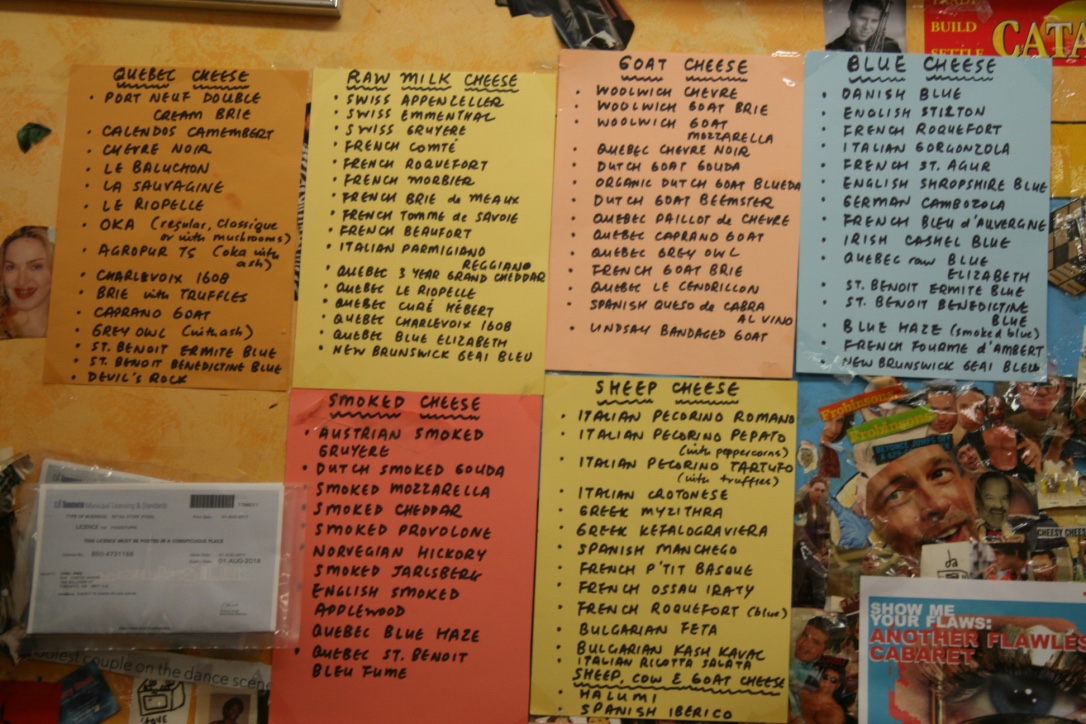 QUEBEC CHEESE
• PORT NEUF DOUBLE
CREAM BRIE
• CALENDOS CAMEMBERT
• CHEVRE NOIR
• LE BALUCHON
• LA SAUVAGINE
• LE RIOPELLE
• OKA (regular, classique
or with mushrooms)
• AGROPUR T5 (oka with
ash)
• CHARLEVOIX 1608
• BRIE with TRUFFLES
• CAPRANO GOAT
• GREY OWL (with ash)
• ST. BENOIT ERMITE BLUE
• ST. BENOIT BENEDICTINE BLUE
• DEVIL'S ROCK
RAW MILK CHEESE
• SWISS APPENZELLER
• SWISS EMMENTHAL
• SWISS GRUYERE
• FRENCH COMTÉ
• FRENCH ROQUEFORT
• FRENCH MORBIER
• FRENCH BRIE de MEAUX
• FRENCH TOMME de SAVOIE
• FRENCH BEAUFORT
• ITALIAN PARMIGIANO
REGGIANO
• QUEBEC 3 YEAR GRAND CHEDDAR
• QUEBEC LE RIOPELLE
• QUEBEC CURÉ HÉBERT
• QUEBEC CHARLEVOIX 1608
• QUEBEC BLUE ELIZABETH
• NEW BRUNSWICK GEAI BLEU
GOAT CHEESE
• WOOLWICH CHEVRE
• WOOLWICH GOAT BRIE
• WOOLWICH GOAT
MOZZARELLA
• QUEBEC CHEVRE NOIR
• DUTCH GOAT GOUDA
• ORGANIC DUTCH GOAT BLUEDA
• DUTCH GOAT BEEMSTER
• QUEBEC PAILLOT de CHEVRE
• QUEBEC CAPRANO GOAT
• QUEBEC GREY OWL
• FRENCH GOAT BRIE
• QUEBEC LE CENDRILLON
• SPANISH QUESO de CABRA
AL VINO
• LINDSAY BANDAGED GOAT
BLUE CHEESE
• DANISH BLUE
• ENGLISH STILTON
• FRENCH ROQUEFORT
• ITALIAN GORGONZOLA
• FRENCH ST. AGUR
• ENGLISH SHROPSHIRE BLUE
• GERMAN CAMBOZOLA
• FRENCH BLEU d'AUVERGNE
• IRISH CASHEL BLUE
• QUEBEC raw BLUE
ELIZABETH
• ST. BENOIT ERMITE BLUE
• ST. BENOIT BENEDICTINE
BLUE
• BLUE HAZE (smoked blue)
• FRENCH FOURME d'AMBERT
• NEW BRUNSWICK GEAI BLEU
SMOKED CHEESE
• AUSTRIAN SMOKED
GRUYERE
• DUTCH SMOKED GOUDA
• SMOKED MOZZARELLA
• SMOKED CHEDDAR
• SMOKED PROVOLONE
• NORVEGIAN HICKORY
SMOKED JARLSBERG
• ENGLISH SMOKED
APPLEWOOD
• QUEBEC BLUE HAZE
• QUEBEC ST. BENOIT
BLEU FUME
SHEEP CHEESE
• ITALIAN PECORINO ROMANO
• ITALIAN PECORINO PEPATO
(with peppercorns)
• ITALIAN PECORINO TARTUFO
(with truffles)
• ITALIAN CROTONESE
• GREEK MYZITHRA
• GREEK KEFALOGRAVIERA
• SPANISH MANCHEGO
• FRENCH P'TIT BASQUE
• FRENCH OSSAU IRATY
• FRENCH ROQUEFORT (blue)
• BULGARIAN FETA
• BULGARIAN KASHKAVAL
• ITALIAN RICOTTA SALATA
SHEEP, COW & GOAT CHEESE
• HALUMI
• SPANISH IBERICO
BUILD
SETTLE
CATA
Frobinsons
Frobinsons
CHEESY CHEES
da
SHOW ME
YOUR FLAWS:
ANOTHER FLAWLES
CABARET
Toronto Municipal Licensing & Standards
THIS LICENCE MUST BE POSTED IN A CONSPICUOUS PLACE
01-AUG-2018
oolest couple on the dance scene